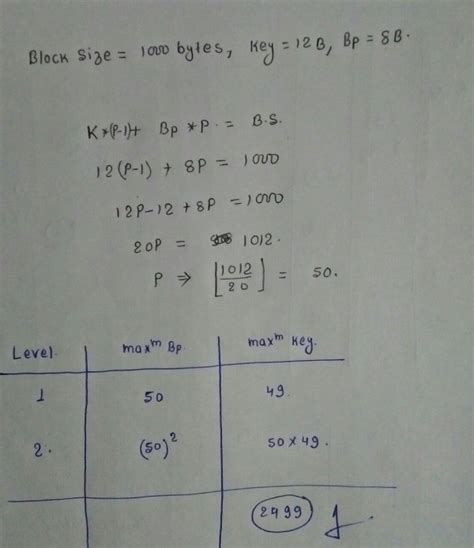 Block Size = 1000 bytes, Key = 12B, Bp = 8B.
K*(P-1)+ Bp *P. = B.S.
12(P-1) + 8P = 1000
12P-12 + 8P = 1000
20P = 1012.
P ⇒ ⌊1012/20⌋ = 50.
Level. maxᵐ Bp. maxᵐ Key.
1 50 49.
2. (50)² 50 x 49.
2499